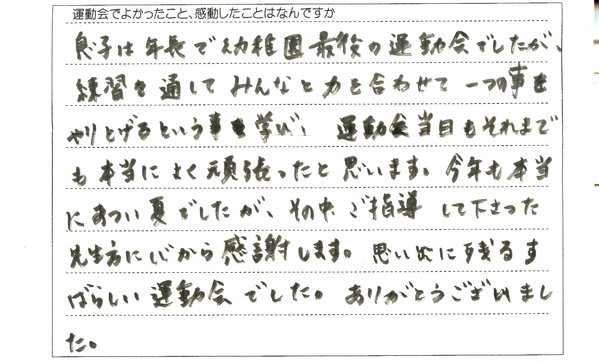 運動会でよかったこと、感動したことはなんですか
息子は年長で幼稚園最後の運動会でしたが、
練習を通してみんなと力を合わせて一つの事を
やりとげるという事を学び、運動会当日もそれまで
も本当によく頑張ったと思います。今年も本当
にあつい夏でしたが、その中ご指導して下さった
先生方に心から感謝します。思い出に残るす
ばらしい運動会でした。ありがとうございまし
た。